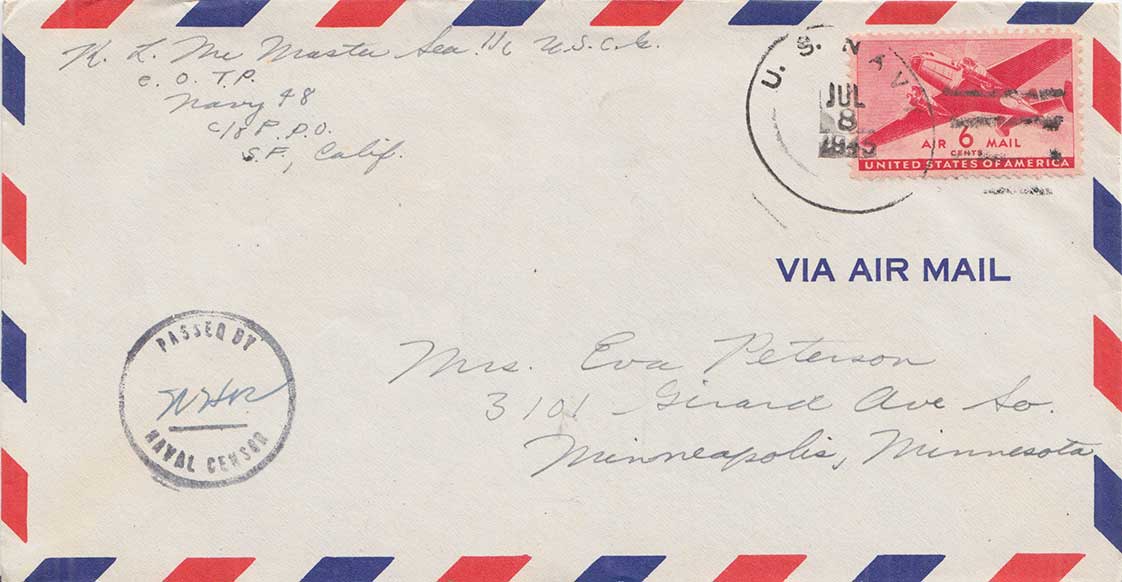 R. L. Mc Master Sea. 1/c U.S.C.G.
C. O. T.P.
Navy 48
C/o F.P.O.
S.F., Calif.
U. S. NAVY
JUL
8
1945
AIR 6 MAIL
CENTS
UNITED STATES OF AMERICA
VIA AIR MAIL
PASSED BY
NAVAL CENSOR
Mrs. Eva Peterson
3101 Girard Ave So.
Minneapolis, Minnesota